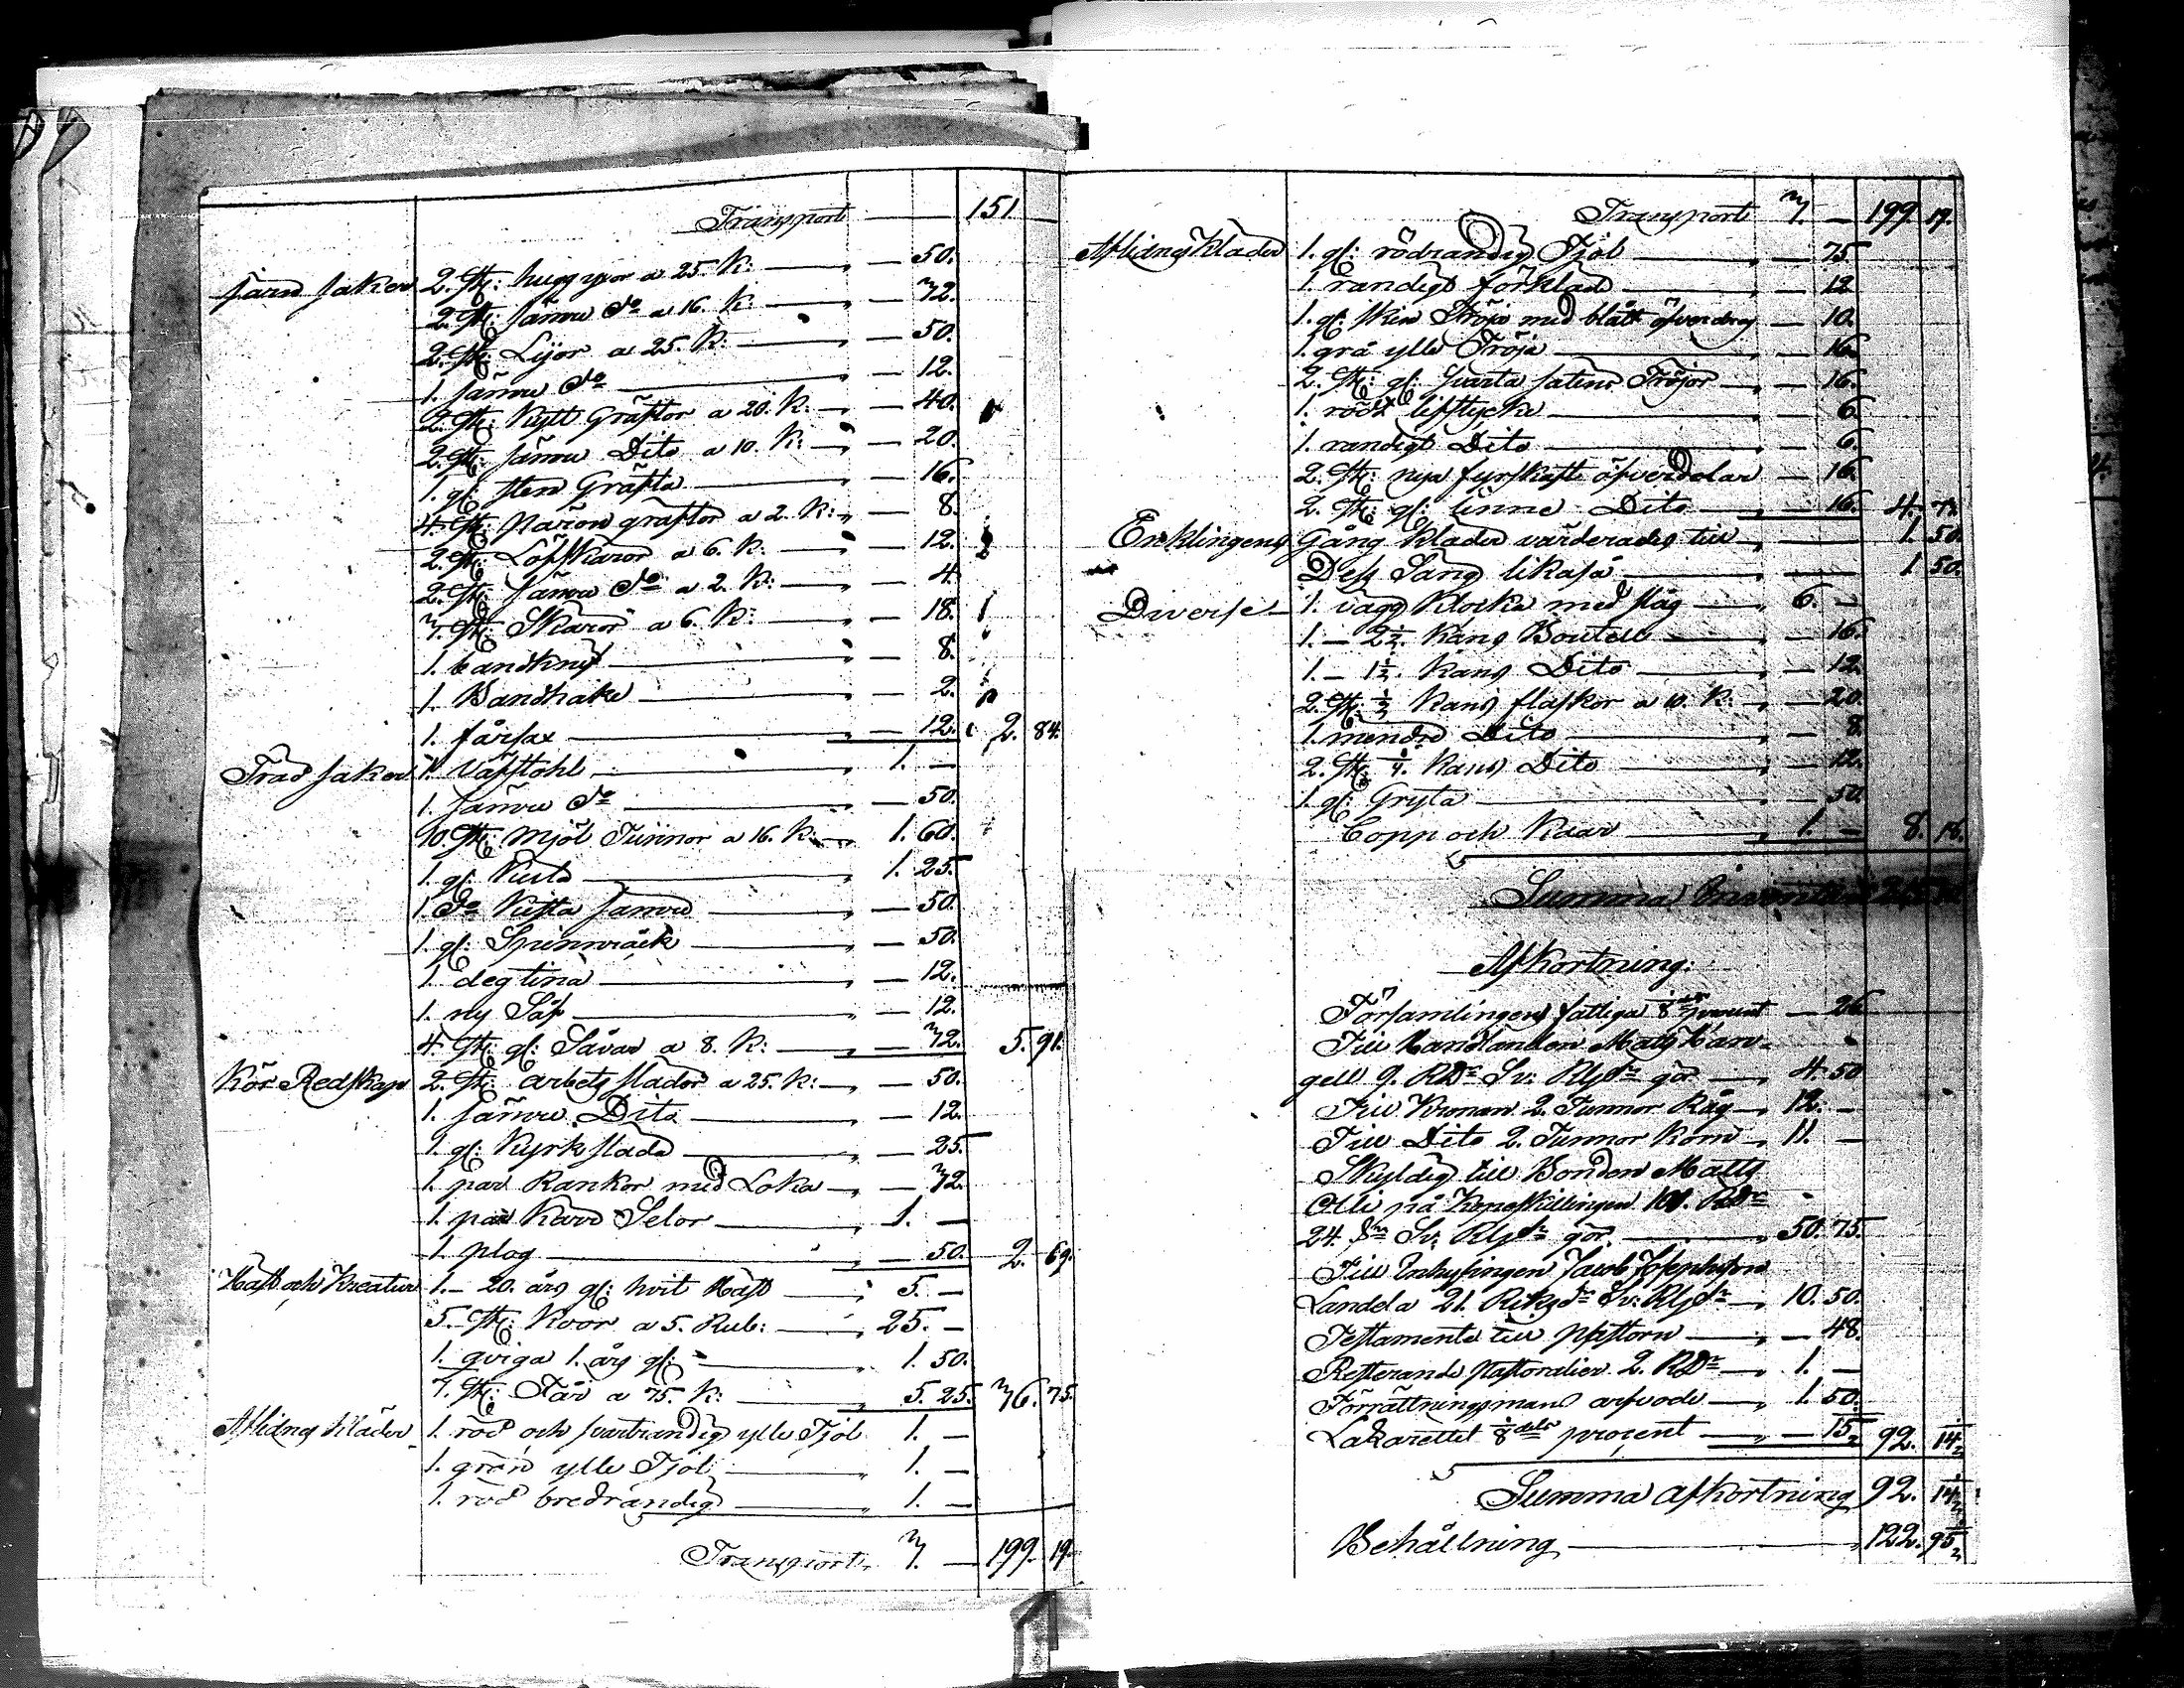 Transport — 151. —
Järn saker 2. st: hugg yxor a 25. K: — 50.
2. st: sämre do a 16. K: — 32.
2. st: Lijor a 25. K: — 50.
1. sämre do — 12.
2. st: Kytt Gräftor a 20. K: — 40.
2. st: sämre Dito a 10. K: — 20.
1. gl: sten Gräfta — 16.
4. st: päron gräftor a 2. K: — 8.
2. st: Löfskäror a 6. K: — 12.
2. st: sämre do a 2. K: — 4.
3. st: Skäror a 6. K: — 18.
1. bandknif — 8.
1. Bandhake — 2.
1. fårsax — 12. 2. 84.
Träd saker 1. Väfstohl — 1. —
1. sämre do — 50.
10. st: mjöl Tunnor a 16. K: — 1. 60.
1. gl: Kista — 1. 25.
1. do Kista sämre — 50.
1. gl: Spinnråck — 50.
1. degtina — 12.
1. ny Så — 12.
4. st: gl: Såvar a 8. K: — 32. 5. 91.
Kör Redskap 2. st: arbets slädor a 25. K: — 50.
1. sämre Dito — 12.
1. gl: Kyrk släda — 25.
1. par Rankor med Loka — 32.
1. par Selor — 1. —
1. plog — 50. 2. 69.
Häst och Kreatur 1. – 20. års gl: hvit Häst — 5. —
5. st: Koor a 5. Rub: — 25. —
1. qviga 1. års gl: — 1. 50.
7. st: Får a 75. K: — 5. 25. 36. 75.
Aflidnes kläder 1. röd och svartrandig ylle Tjol 1. —
1. grön ylle Tjol — 1. —
1. röd bredrandig — 1. —
Transport 3. — 199. 19.
Transport 3. — 199. 19.
Aflidnes Kläder 1. gl: rödrandig Tjol — 75.
1. randigt förkläd — 12
1. gl: skin Tröja med blått öfverdrag — 10.
1. grå ylle Tröja — 16.
2. st: gl: svarta satins Tröjor — 16.
1. rödt lifstycke — 6.
1. randigt Dito — 6.
2. st: nya fyrskafts öfverdelar — 16.
2. st: gl: linne Dito — 16. 4. 73.
Enklingens Gång kläder värderades till — 1. 50.
Dess Säng likaså — 1. 50.
Diverse 1. vägg Klocka med slag — 6. —
1. – 2½. Kans Boutell — 16.
1. – 1½. Kans Dito — 12.
2. st: ½ Kans flaskor a 10. K: — 20.
1. mindre Dito — 8.
2. st: ¼. Kans Dito — 12.
1. gl: Gryta — 50.
Copp och Kaar — 1. — 8. 18.
Summa
Afkortning:
Församlingens fattiga 8 dels procent — 26
Till Handlanden Matts
gell 9. RDr Sv: Rgs gör — 4. 50
Till Kronan 2. Tunnor Råg — 12. —
Till Dito 2. Tunnor Korn — 11. —
Skyldig till Bonden Matts
Olli på Köpeskillingen 101. RDr
24. Sv: Rgs gör — 50. 75.
Till Inhysingen Jacob Josephsson
Landela 21. Riksdr Sv: Rgs — 10. 50.
Testamente till — 48.
Resterande pastoralier 2. RDr — 1. —
Förrättningsmans arfvode — 1. 50.
Lazarettet ⅛ dels procent — 15½ 92. 14½
Summa afkortning 92. 14½
Behållning — 122. 95½